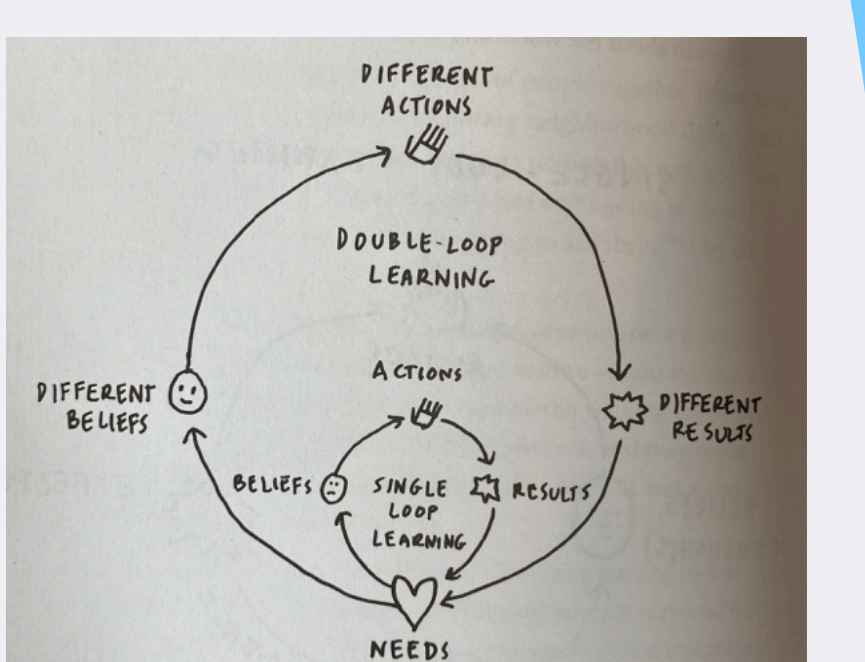 DIFFERENT
ACTIONS
DOUBLE-LOOP
LEARNING
ACTIONS
DIFFERENT
BELIEFS
DIFFERENT
RESULTS
BELIEFS
SINGLE
LOOP
LEARNING
RESULTS
NEEDS